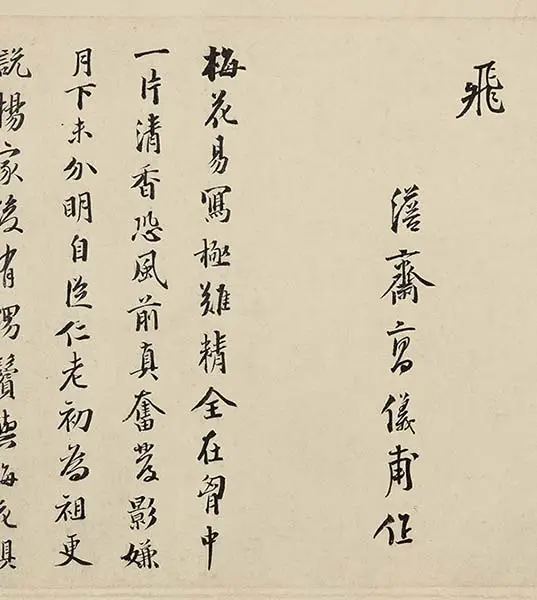 飛
齋高儀甫作
梅花易寫極難精全在胷中
一片清香恐風前真奮發影嫌
月下未分明自從仁老初為祖更
說楊家後有甥鬢與梅花俱